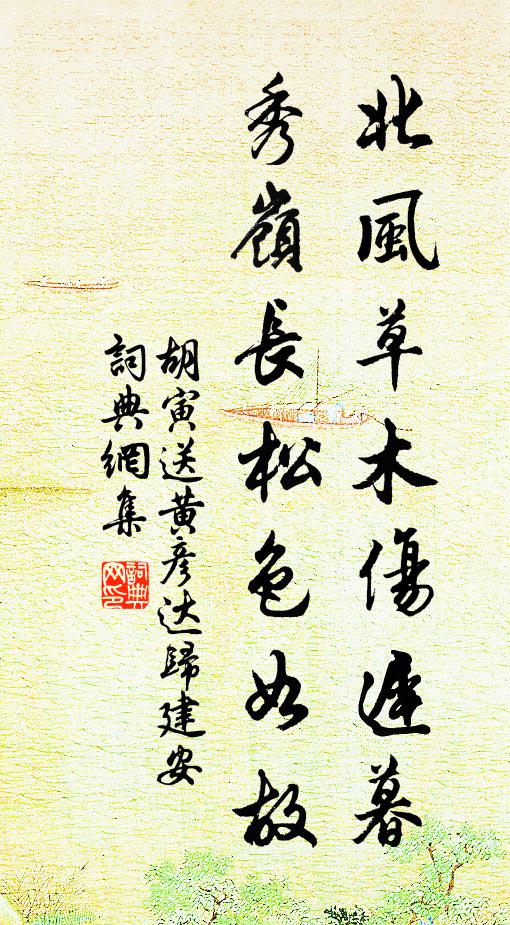 北風草木傷遲暮
秀嶺長松色如故
胡寅送黃彦达歸建安
詞典網集
詞典网印